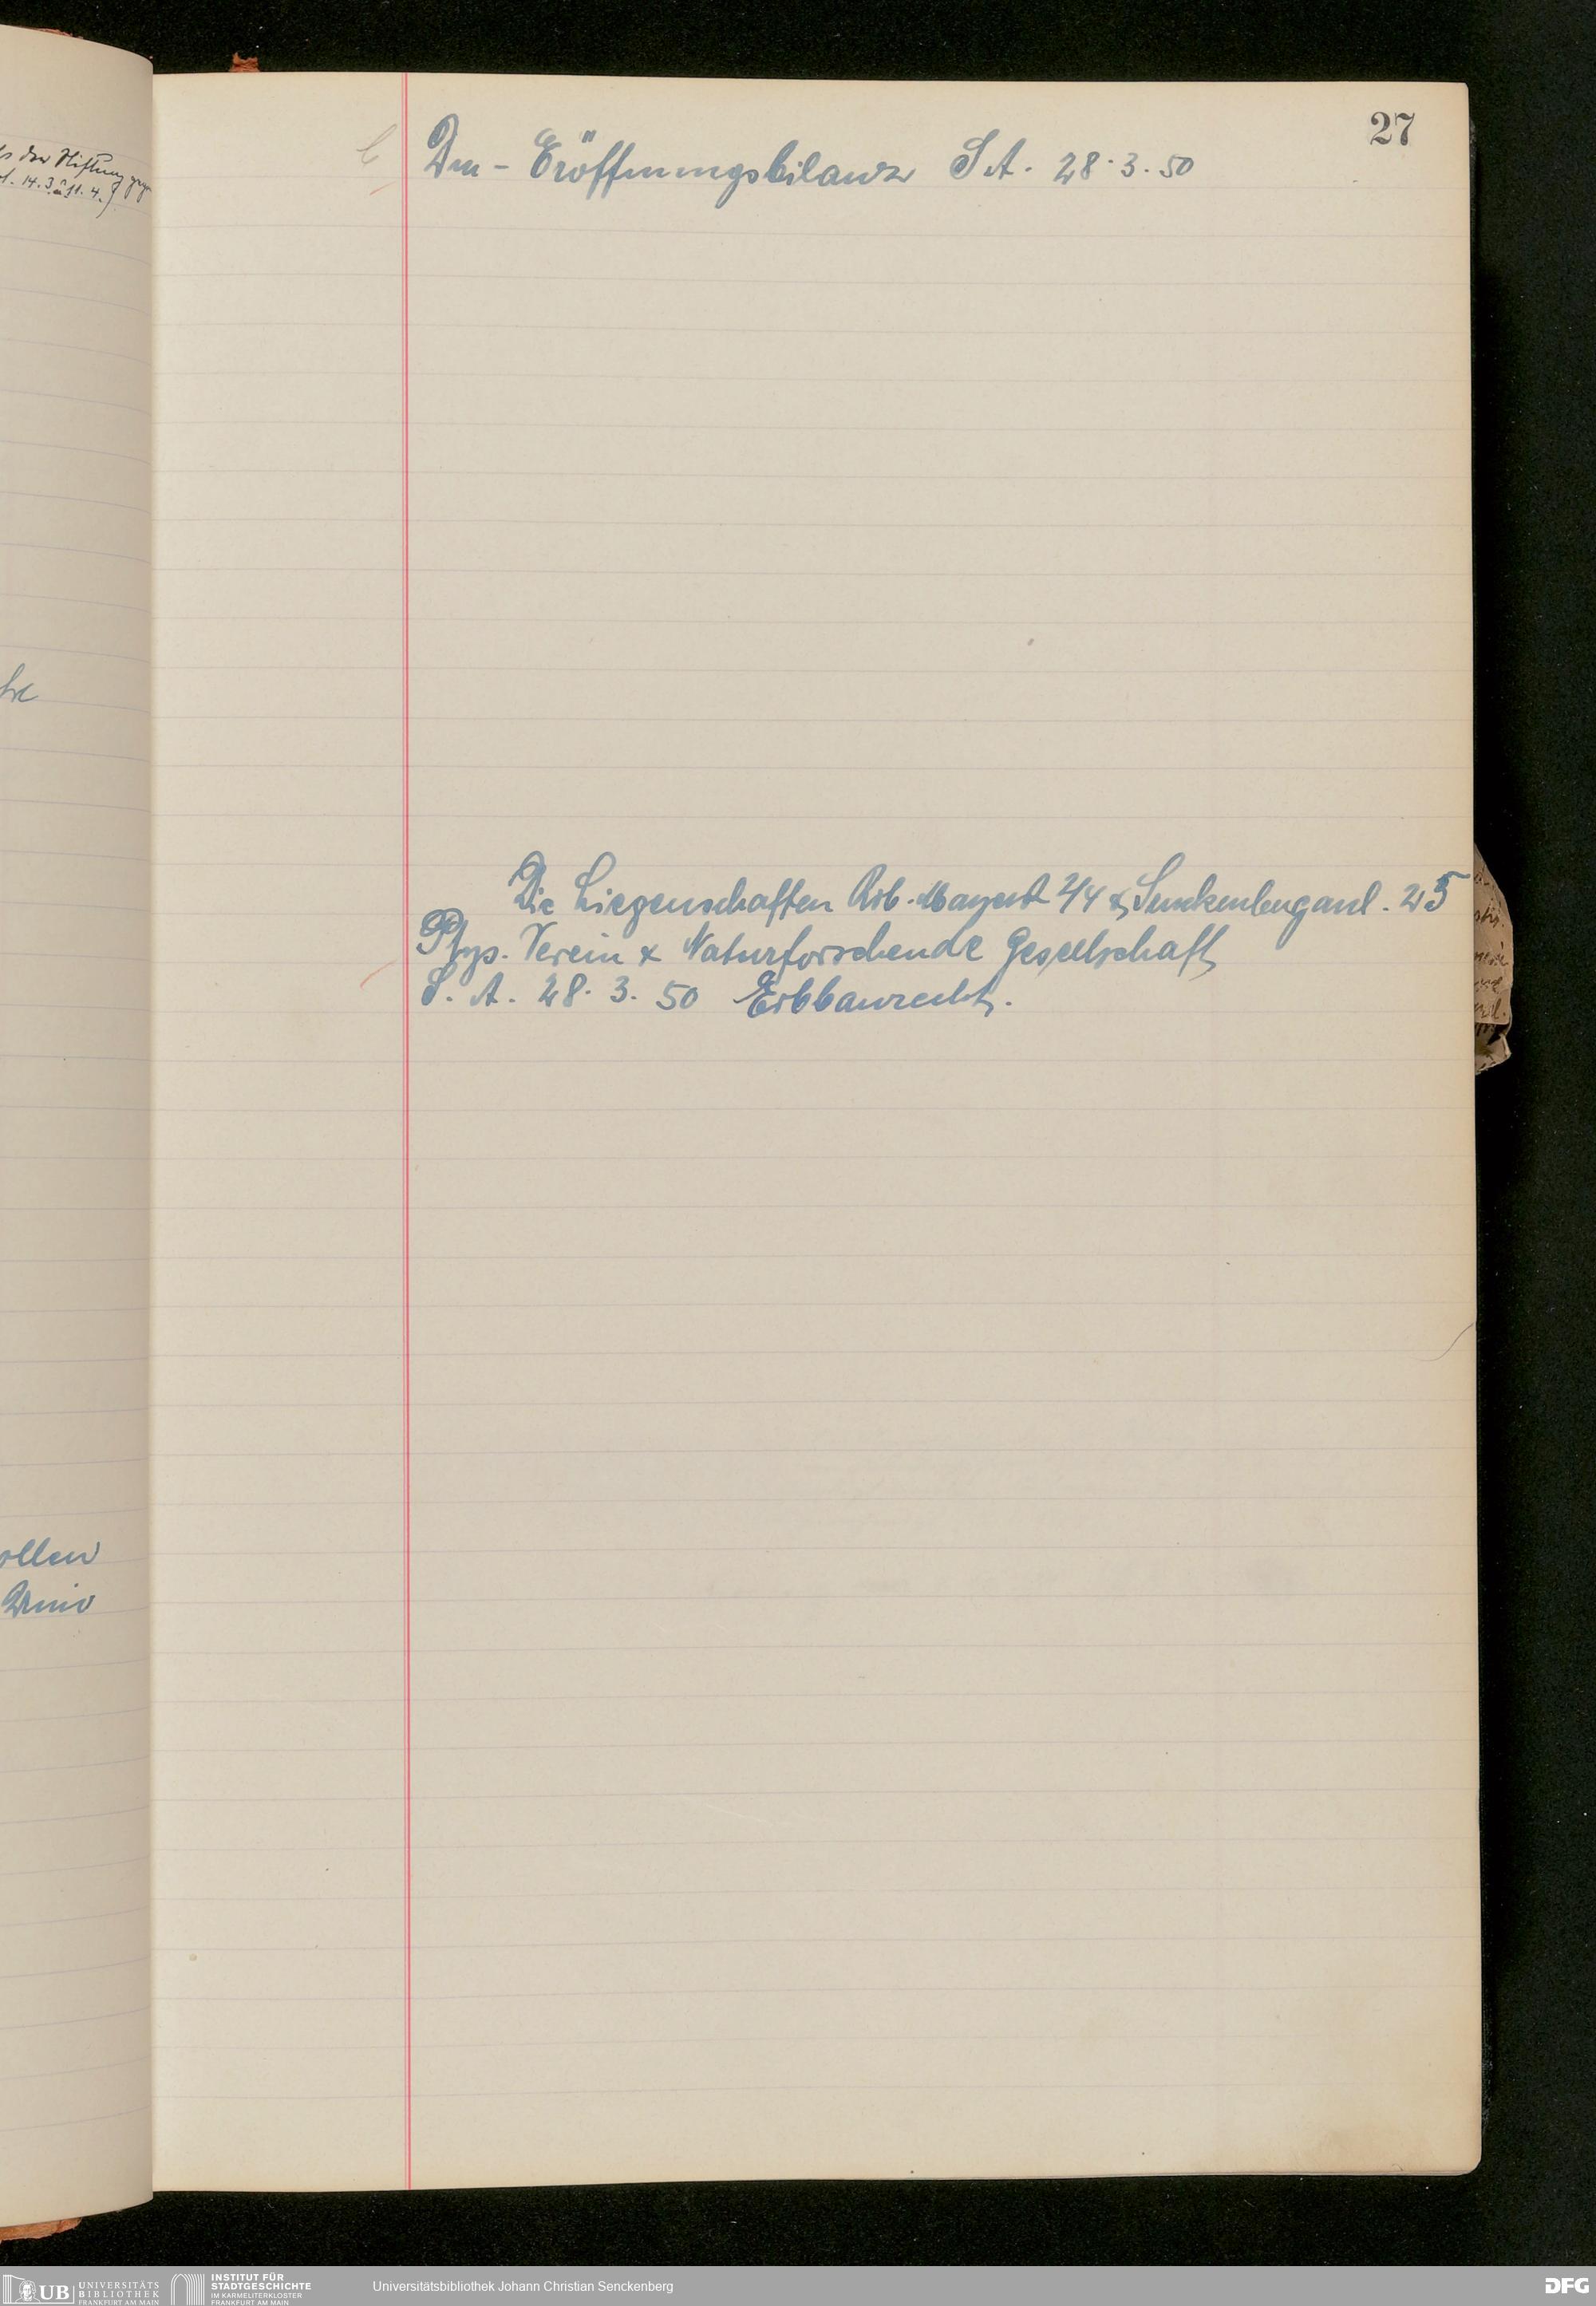 27
Dm - Eröffnungsbilanz S. A. 28.3.50
Die Liegenschaften Rob. Mayerst 2/4 & Senckenberganl. 25
Phys. Verein & Naturforschende Gesellschaft
S. A. 28. 3. 50 Erbbaurecht.
der Stiftung
14.3. 11.4.
ollen
UB UNIVERSITÄTS
BIBLIOTHEK
FRANKFURT AM MAIN
INSTITUT FÜR
STADTGESCHICHTE
IM KARMELITERKLOSTER
FRANKFURT AM MAIN
Universitätsbibliothek Johann Christian Senckenberg
DFG